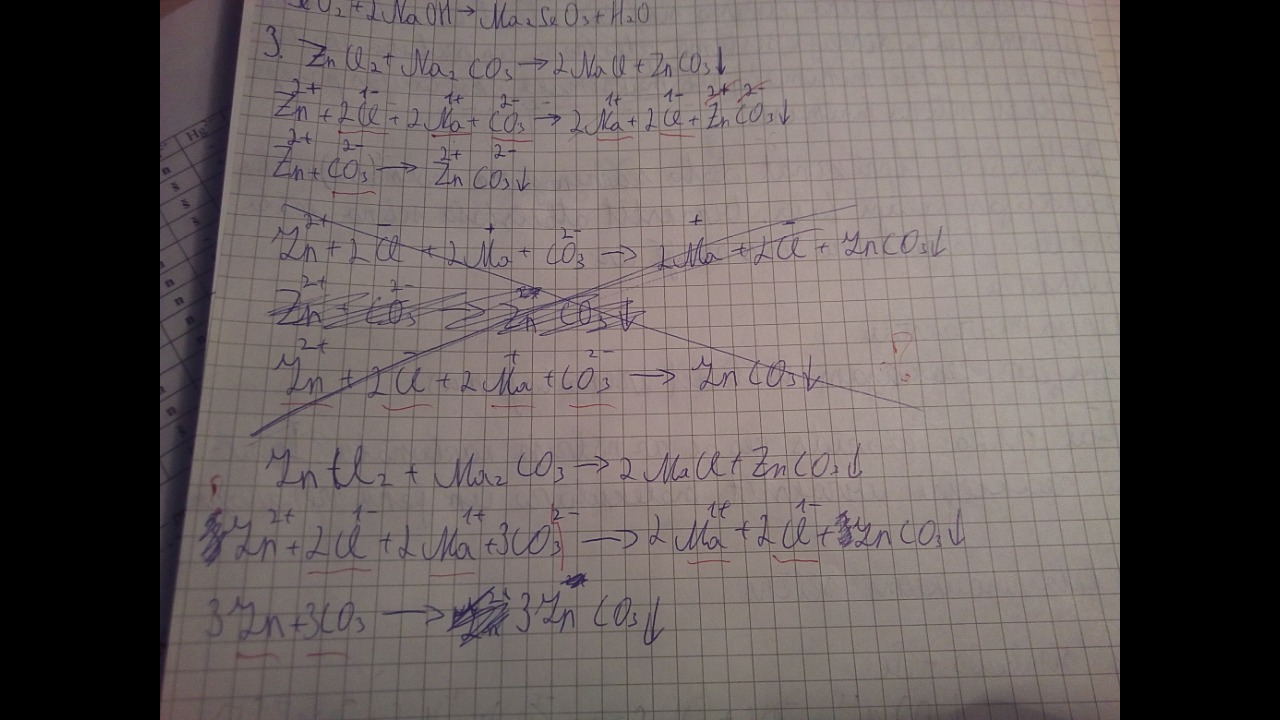 SeO₂ + 2NaOH → Na₂SeO₃ + H₂O
3. ZnCl₂ + Na₂CO₃ → 2NaCl + ZnCO₃↓
Zn²⁺ + 2Cl¹⁻ + 2Na¹⁺ + CO₃²⁻ → 2Na¹⁺ + 2Cl¹⁻ + Zn²⁺CO₃²⁻↓
Zn²⁺ + CO₃²⁻ → Zn²⁺CO₃²⁻↓
Zn²⁺ + 2Cl⁻ + 2Na⁺ + CO₃²⁻ → 2Na⁺ + 2Cl⁻ + ZnCO₃↓
Zn²⁺ + CO₃²⁻ → ZnCO₃↓
Zn²⁺ + 2Cl⁻ + 2Na⁺ + CO₃²⁻ → ZnCO₃↓ ?
ZnCl₂ + Na₂CO₃ → 2NaCl + ZnCO₃↓
Zn²⁺ + 2Cl¹⁻ + 2Na¹⁺ + 3CO₃²⁻ → 2Na¹⁺ + 2Cl¹⁻ + ZnCO₃↓
3Zn + 3CO₃ → 3ZnCO₃↓